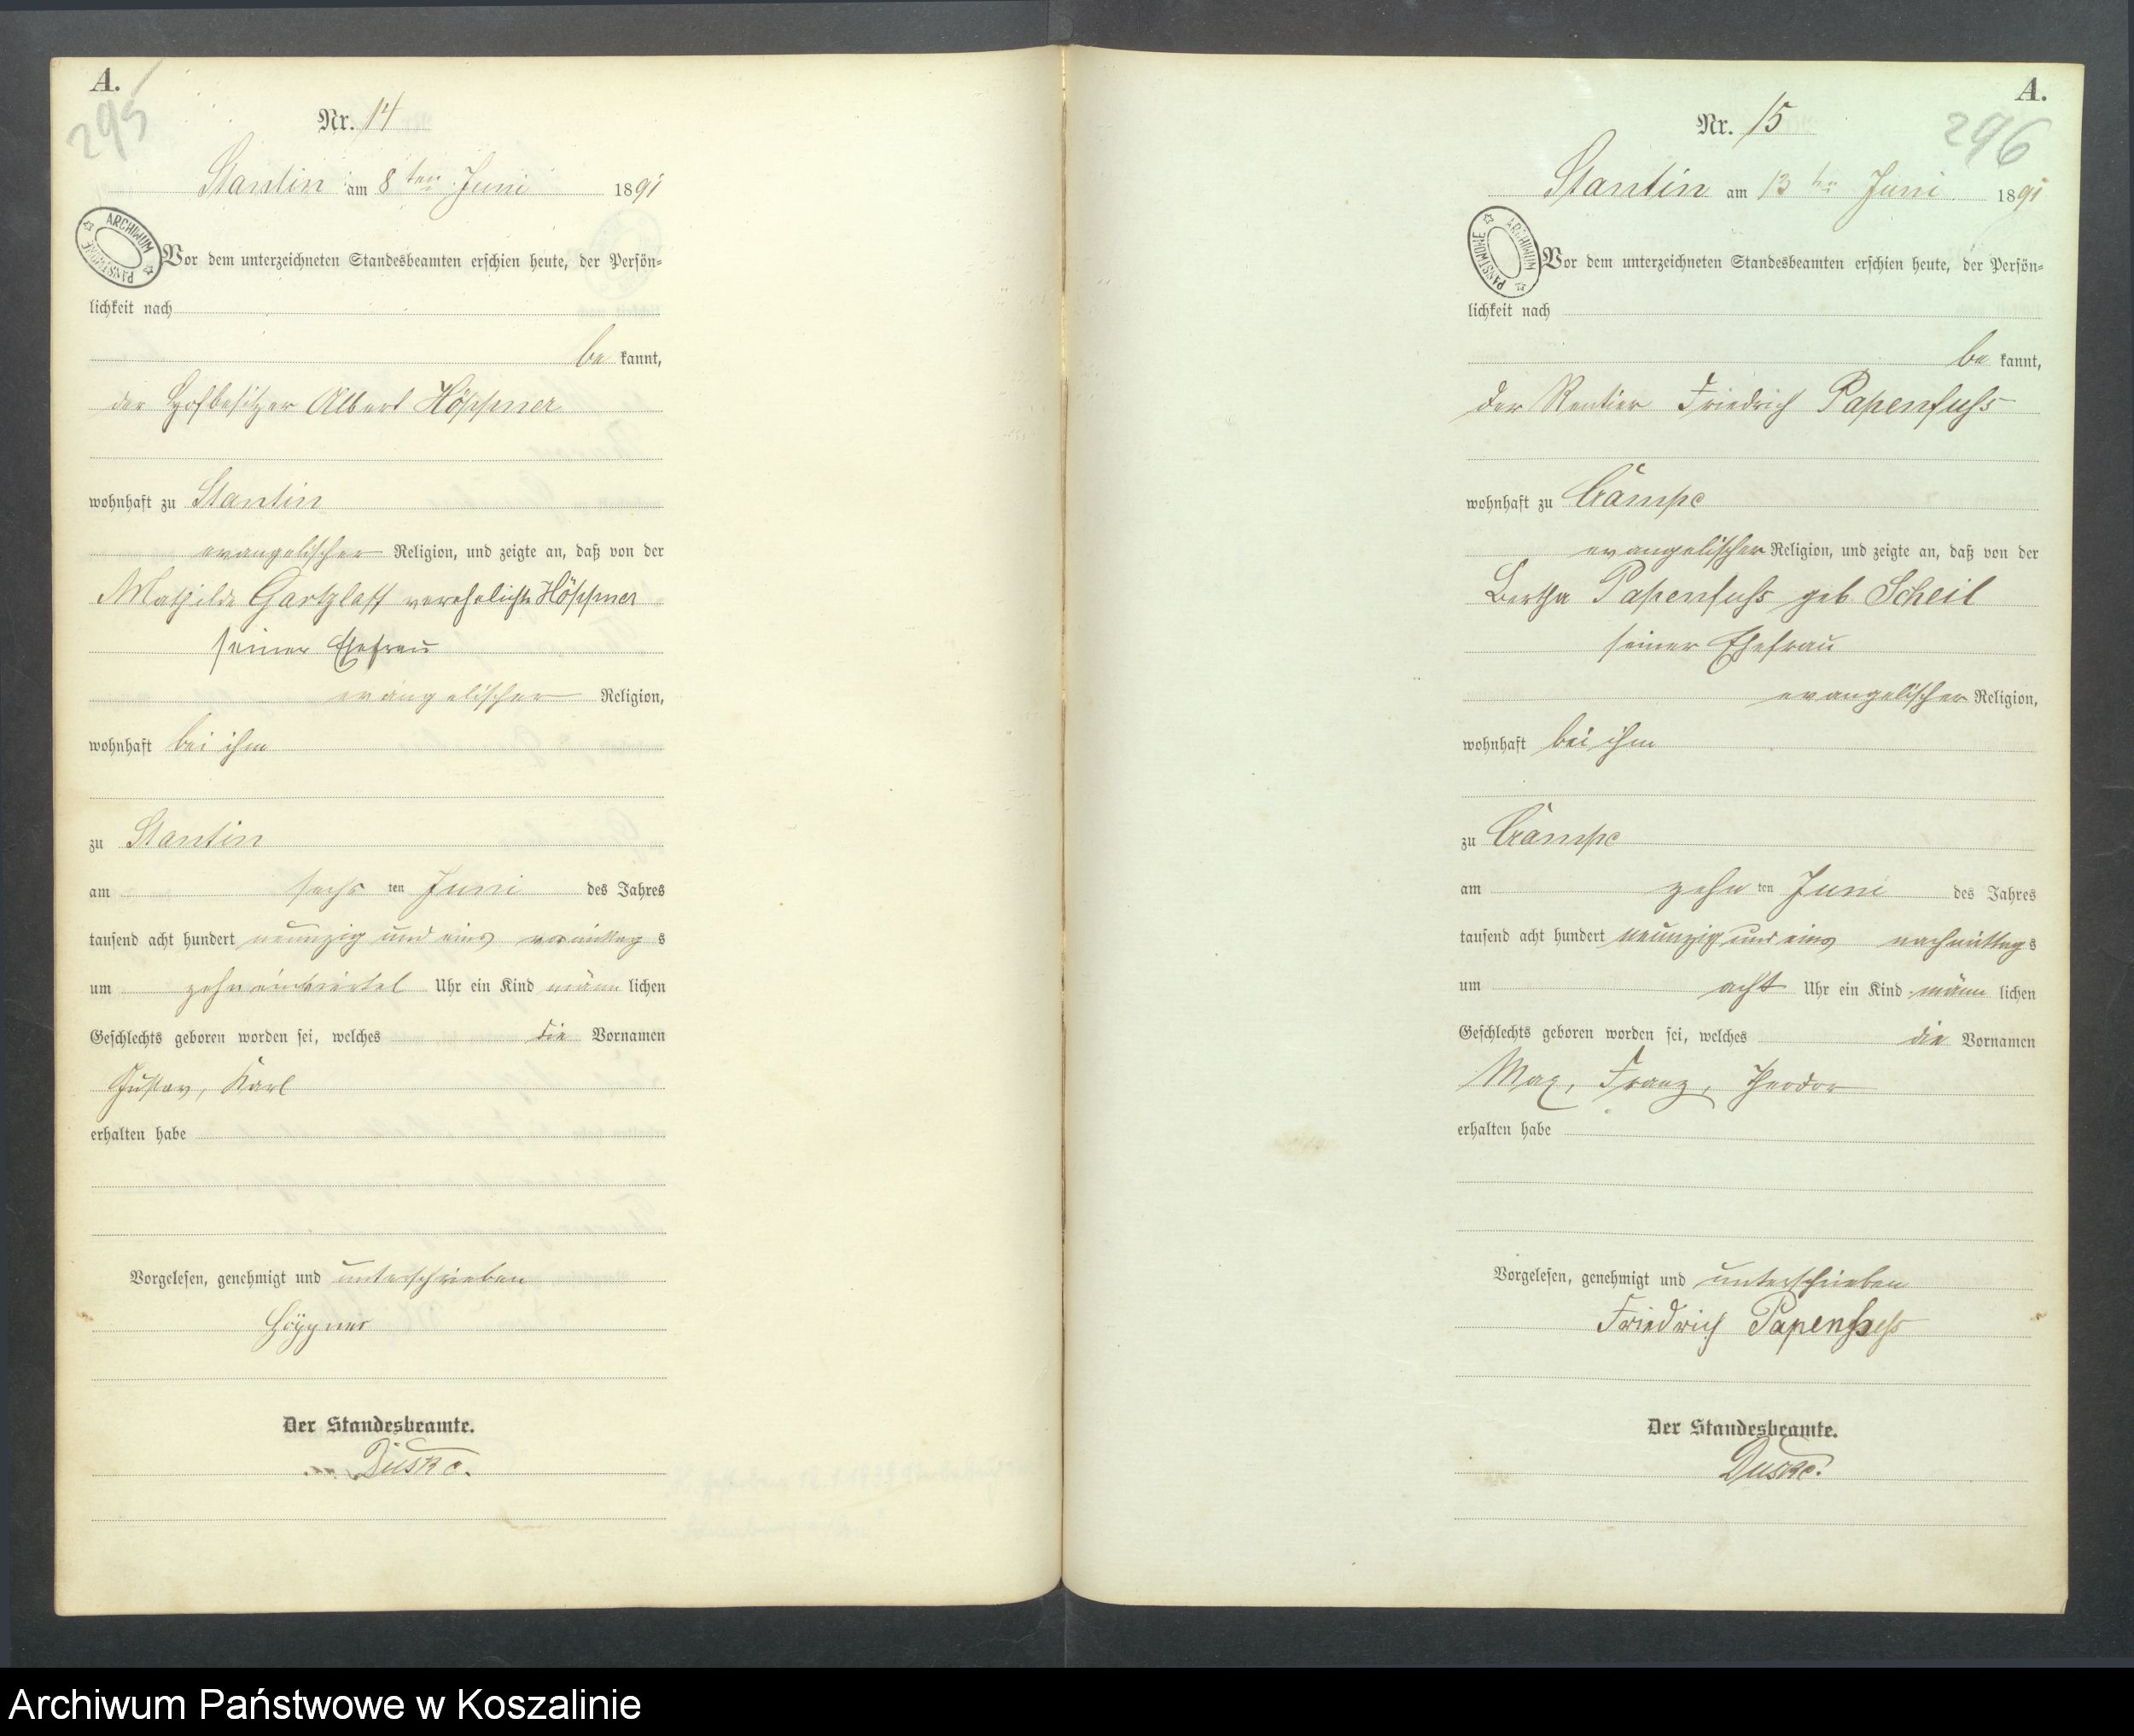 A.
295
Nr. 14
Stantin am 8ten Juni 1891
ARCHIWUM PAŃSTWOWE
Vor dem unterzeichneten Standesbeamten erschien heute, der Persön-
lichkeit nach
be kannt,
der Hofbesitzer Albert Höppner
wohnhaft zu Stantin
evangelischer Religion, und zeigte an, daß von der
Mathilde Gartzlaff verehelichte Höppner
seiner Ehefrau
evangelischer Religion,
wohnhaft bei ihm
zu Stantin
am sechs ten Juni des Jahres
tausend acht hundert neunzig und eins vormittag s
um zehn einviertel Uhr ein Kind männ lichen
Geschlechts geboren worden sei, welches die Vornamen
Gustav, Karl
erhalten habe
Vorgelesen, genehmigt und unterschrieben
Höppner
Der Standesbeamte.
Duske.
A.
296
Nr. 15
Stantin am 13ten Juni 1891
ARCHIWUM PAŃSTWOWE
Vor dem unterzeichneten Standesbeamten erschien heute, der Persön-
lichkeit nach
be kannt,
der Rentier Friedrich Papenfuhs
wohnhaft zu Gampe
evangelischer Religion, und zeigte an, daß von der
Bertha Papenfuhs geb Scheil
seiner Ehefrau
evangelischer Religion,
wohnhaft bei ihm
zu Gampe
am zehn ten Juni des Jahres
tausend acht hundert neunzig und eins nachmittag s
um acht Uhr ein Kind männ lichen
Geschlechts geboren worden sei, welches die Vornamen
Max, Franz, Theodor
erhalten habe
Vorgelesen, genehmigt und unterschrieben
Friedrich Papenfuhs
Der Standesbeamte.
Duske.
Archiwum Państwowe w Koszalinie